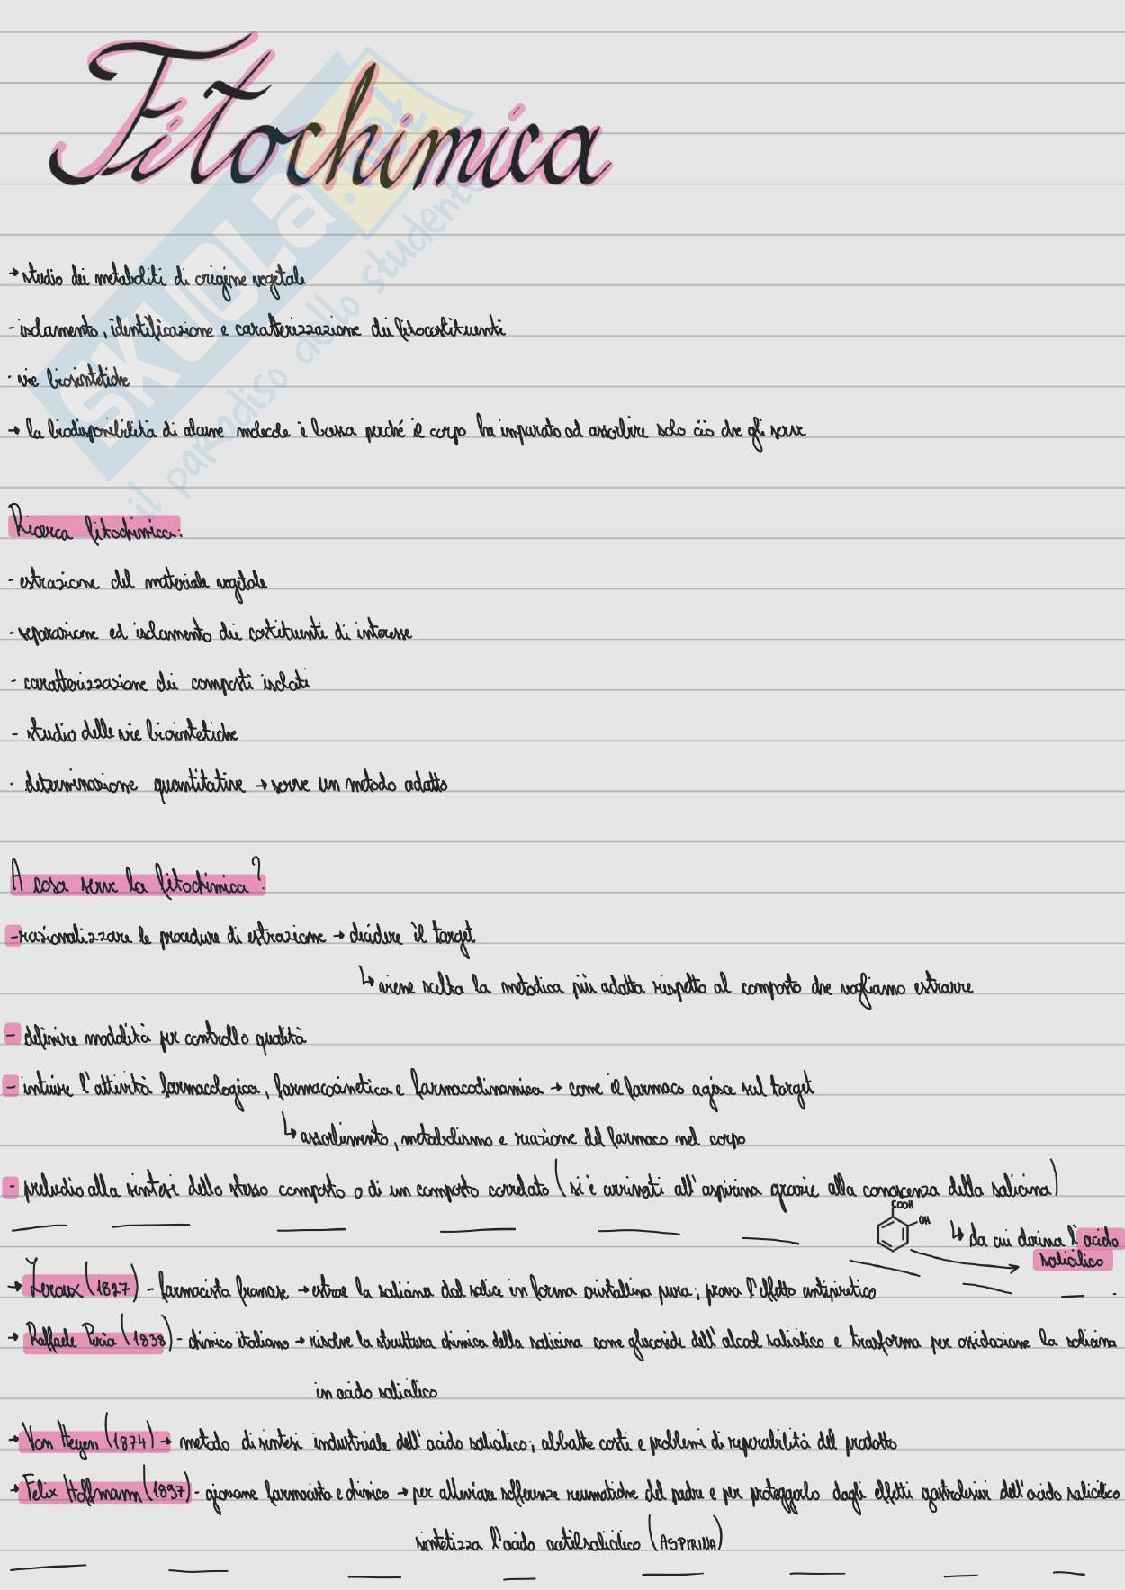 Fitochimica
SKUOLA.net
il paradiso dello studente
→ studio dei metaboliti di origine vegetale
- isolamento, identificazione e caratterizzazione dei fitocostituenti
- vie biosintetiche
→ la biodisponibilità di alcune molecole è bassa perché il corpo ha imparato ad assorbire solo ciò che gli serve
Ricerca fitochimica:
- estrazione del materiale vegetale
- separazione ed isolamento dei costituenti di interesse
- caratterizzazione dei composti isolati
- studio delle vie biosintetiche
- determinazione quantitative → serve un metodo adatto
A cosa serve la fitochimica?
- razionalizzare le procedure di estrazione → decidere il target
↳ viene scelta la metodica più adatta rispetto al composto che vogliamo estrarre
- definire modalità per controllo qualità
- intuire l'attività farmacologica, farmacocinetica e farmacodinamica → come il farmaco agisce sul target
↳ assorbimento, metabolismo e reazione del farmaco nel corpo
- preludio alla sintesi dello stesso composto o di un composto correlato (si è arrivati all'aspirina grazie alla conoscenza della salicina)
COOH
OH
↳ da cui deriva l'acido
salicilico
→ Leroux (1827) - farmacista francese → estrae la salicina dal salice in forma cristallina pura; prova l'effetto antipiretico
→ Raffaele Piria (1838) - chimico italiano → risolve la struttura chimica della salicina come glucoside dell'alcol salicilico e trasforma per ossidazione la salicina
in acido salicilico
→ Von Heyen (1874) → metodo di sintesi industriale dell'acido salicilico; abbatte costi e problemi di reperibilità del prodotto
→ Felix Hoffmann (1897) - giovane farmacista e chimico → per alleviare sofferenze reumatiche del padre e per proteggerlo dagli effetti gastrolesivi dell'acido salicilico
sintetizza l'acido acetilsalicilico (ASPIRINA)